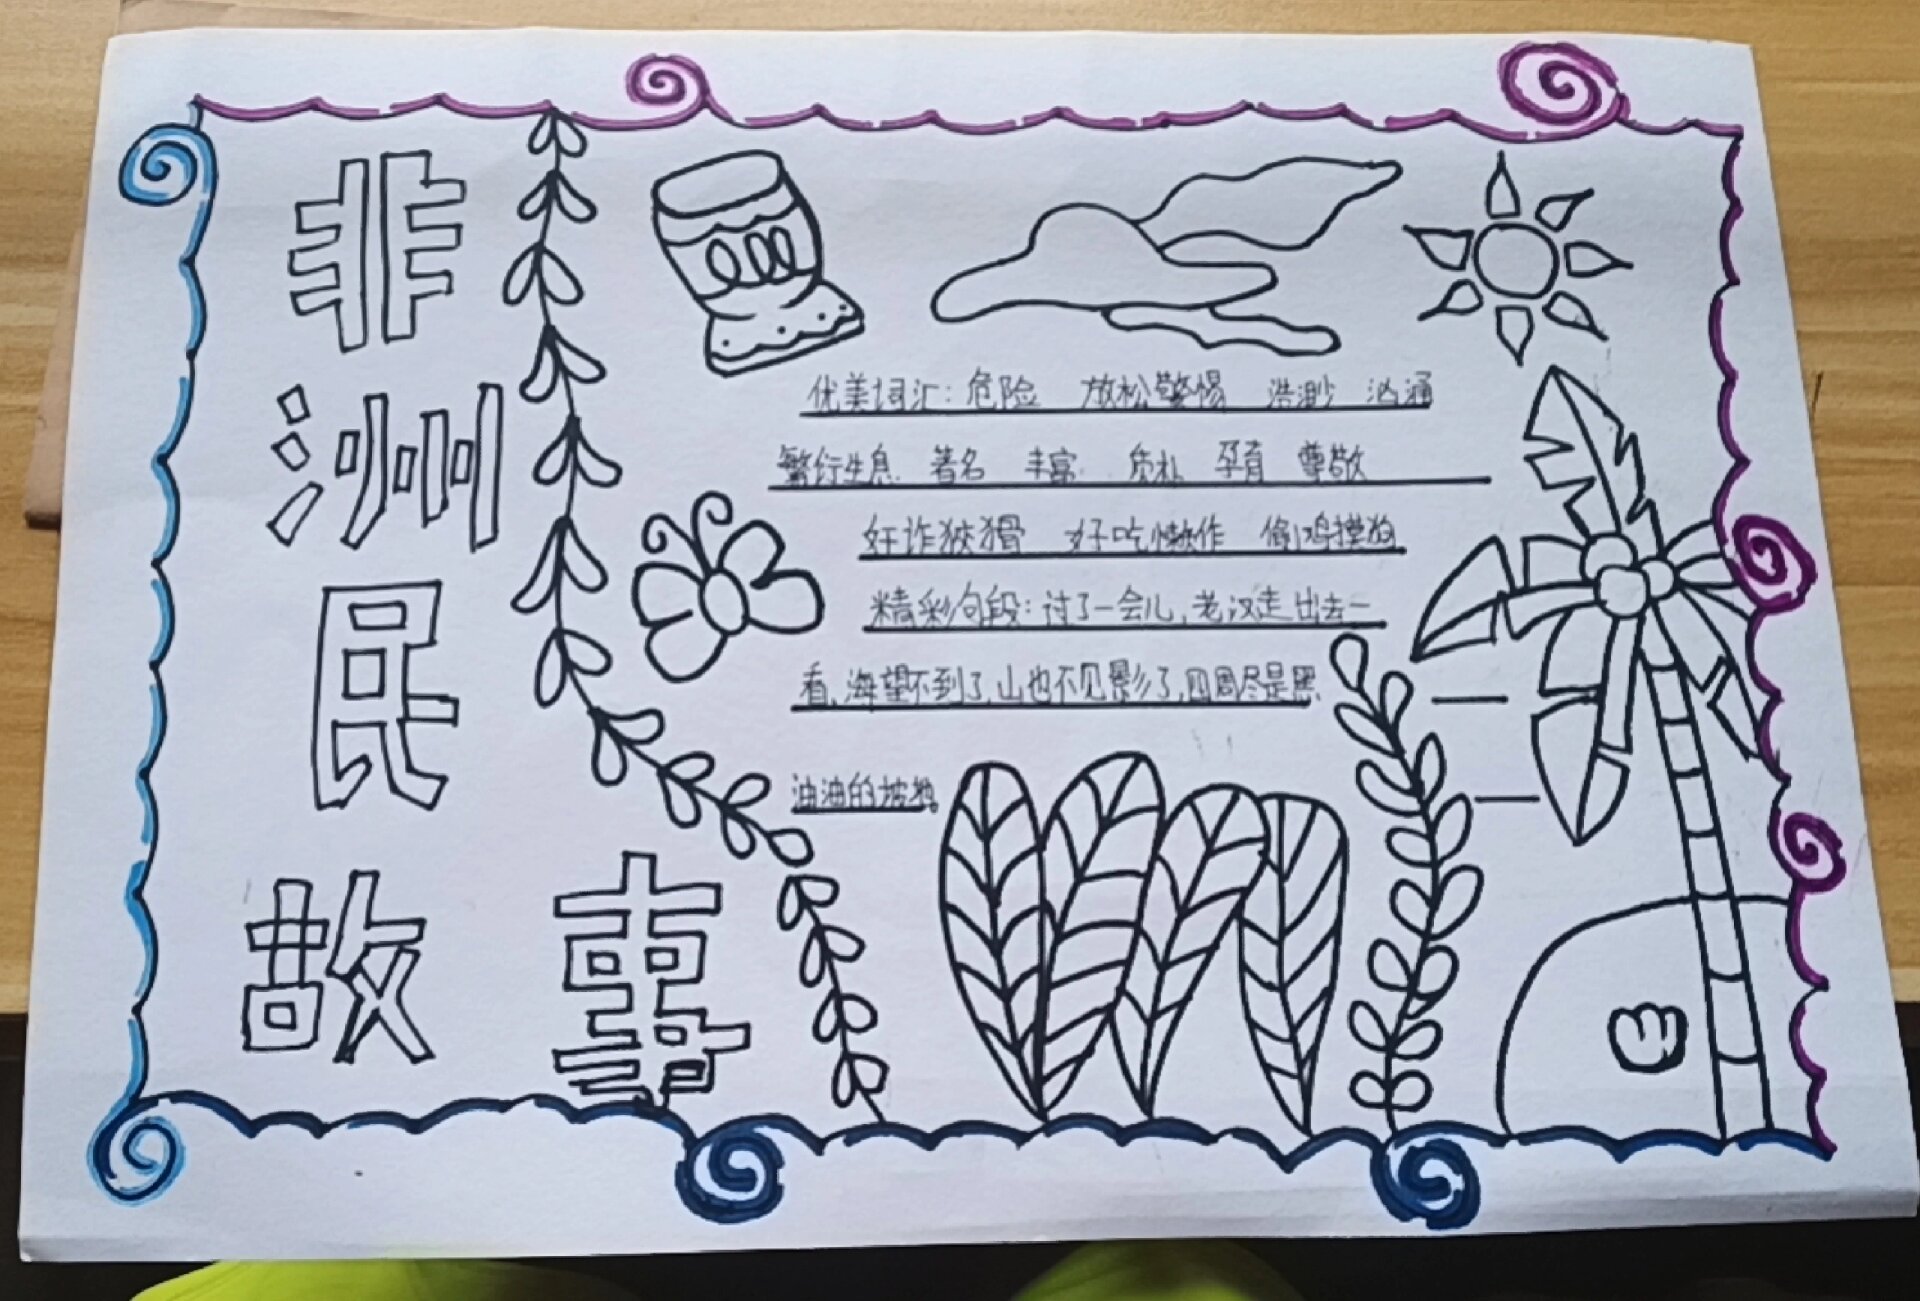 非洲民故事
优美词汇:危险 放松警惕 浩渺 汹涌
繁衍生息 著名 丰富 质朴 孕育 尊敬
奸诈狡猾 好吃懒作 偷鸡摸狗
精彩句段:过了一会儿,老汉走出去一
看,海望不到了,山也不见影了,四周尽是黑
油油的坡地。